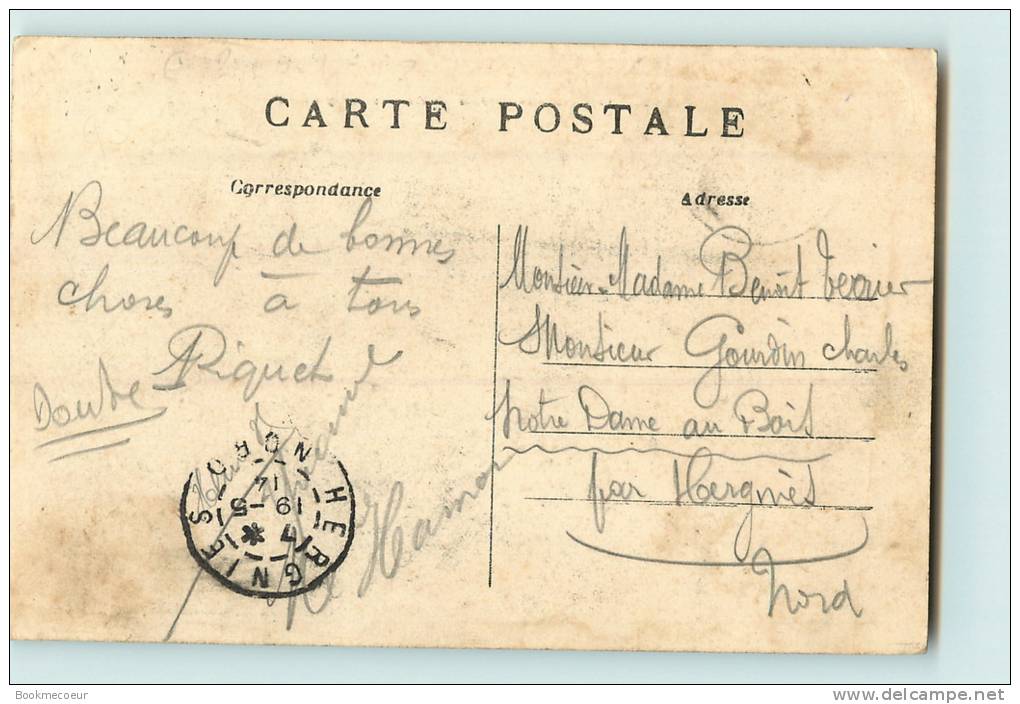 CARTE POSTALE
Correspondance
Beaucoup de bonnes
choses à tous
Riquet
Adresse
Monsieur-Madame Benoit Verrier
Monsieur Gourdin Charles
Notre Dame au Bois
par Hergnies
Nord
HERGNIES
NORD
7
19-5
14
Bookmecoeur
www.delcampe.net